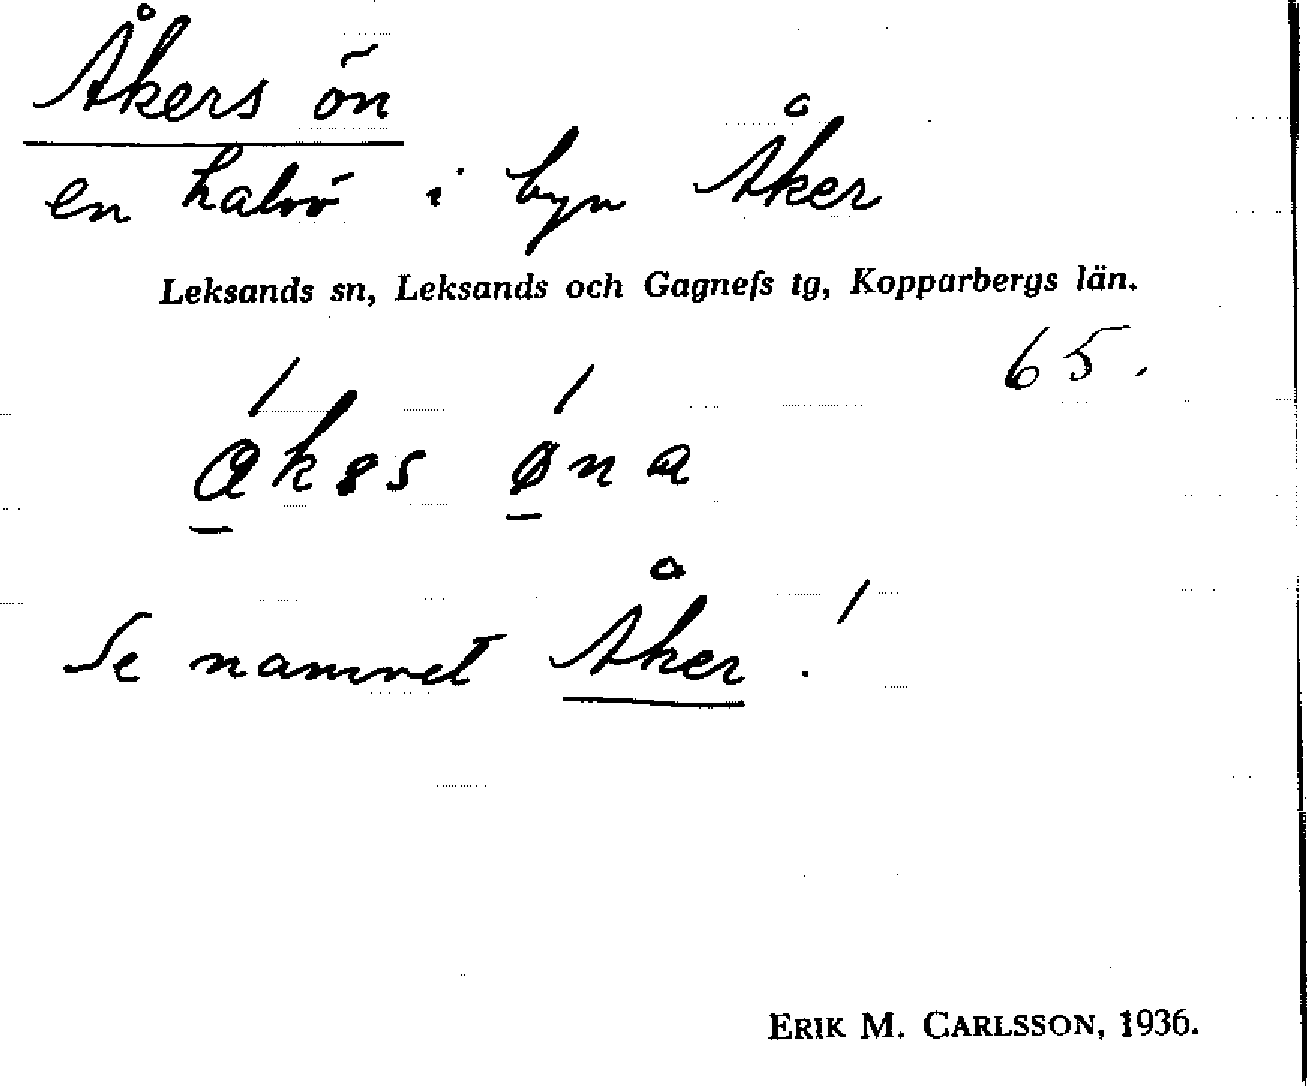 Åkers ön
en halvö i byn Åker
Leksands sn, Leksands och Gagnefs tg, Kopparbergs län.
65.
Se namnet Åker!
ERIK M. CARLSSON, 1936.